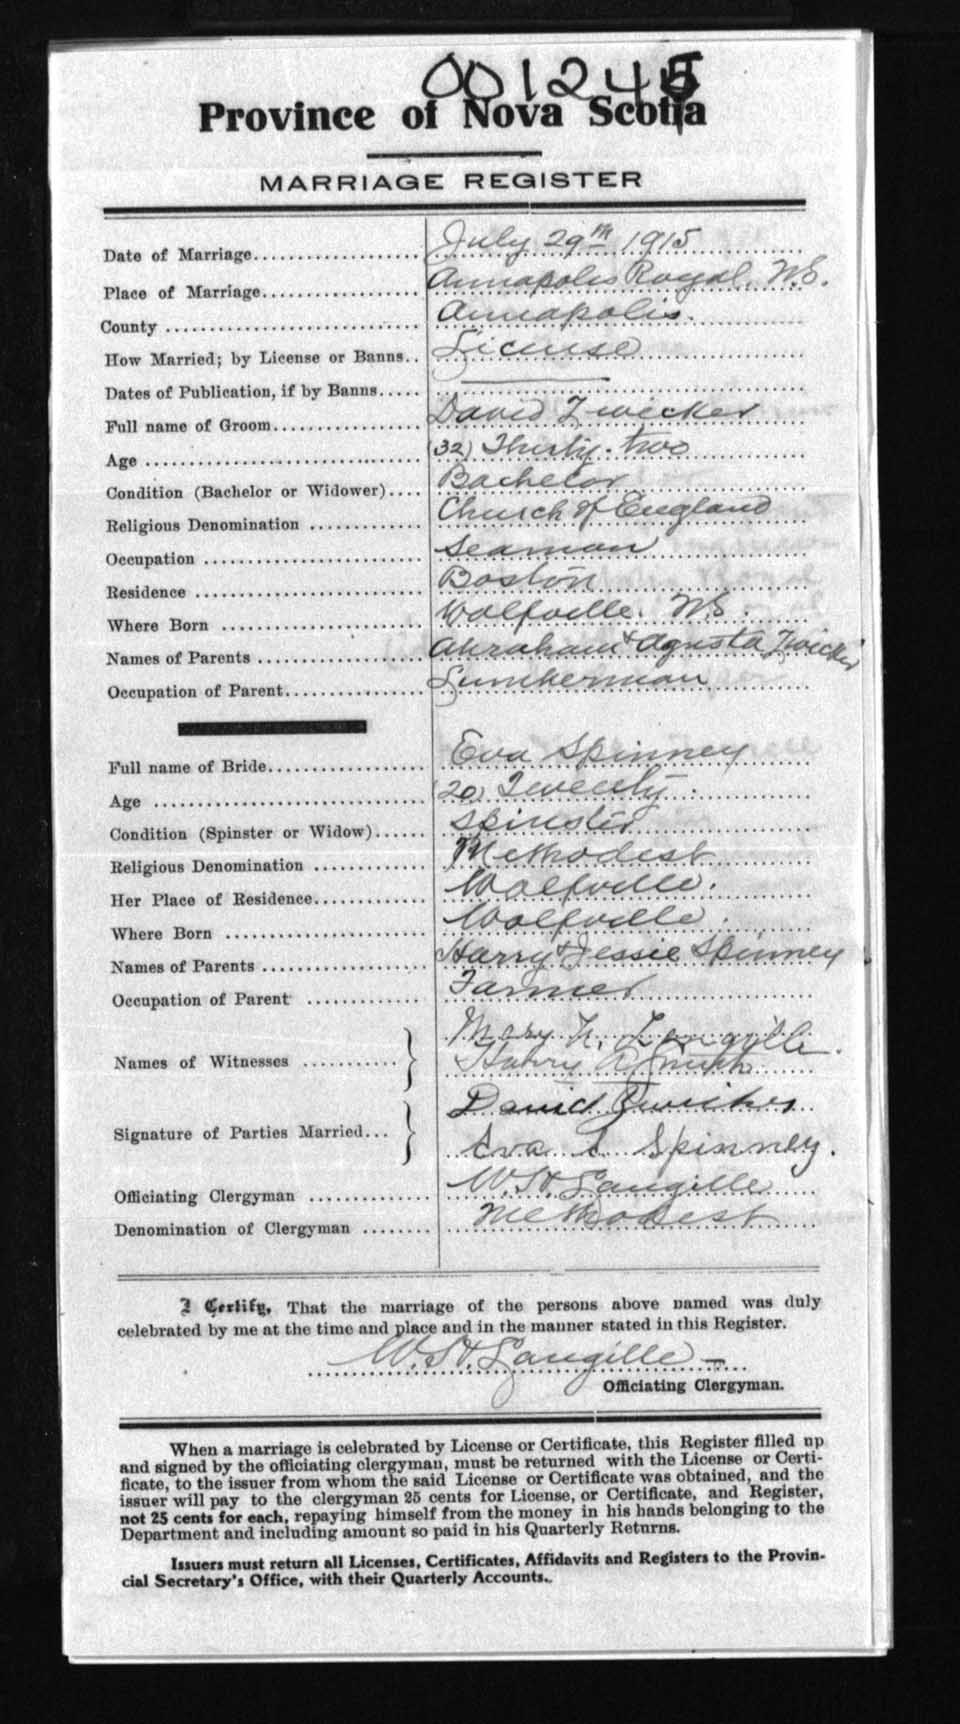 001245
Province of Nova Scotia
MARRIAGE REGISTER
Date of Marriage.................... July 29th 1915
Place of Marriage................... Annapolis Royal, N.S.
County ............................. Annapolis.
How Married; by License or Banns.. License
Dates of Publication, if by Banns..... ———
Full name of Groom.................. David Zwicker
Age ................................ (32) Thirty-two
Condition (Bachelor or Widower).... Bachelor
Religious Denomination ............. Church of England
Occupation ......................... Seaman
Residence .......................... Boston
Where Born ......................... Wolfville. N.S.
Names of Parents ................... Abraham & Agusta Zwicker
Occupation of Parent................ Lumberman
Full name of Bride.................. Eva Spinney
Age ................................ (20) Twenty.
Condition (Spinster or Widow)...... Spinster
Religious Denomination ............. Methodest
Her Place of Residence.............. Wolfville.
Where Born ......................... Wolfville.
Names of Parents ................... Harry & Jessie Spinney
Occupation of Parent ............... Farmer
Names of Witnesses ............ } Mary H. Langille.
Harry A Smith
Signature of Parties Married... } David Zwicker
Eva L Spinney.
Officiating Clergyman .............. W. H. Langille
Denomination of Clergyman ........ Methodest
I Certify, That the marriage of the persons above named was duly
celebrated by me at the time and place and in the manner stated in this Register.
W. H. Langille —
Officiating Clergyman.
When a marriage is celebrated by License or Certificate, this Register filled up
and signed by the officiating clergyman, must be returned with the License or Certi-
ficate, to the issuer from whom the said License or Certificate was obtained, and the
issuer will pay to the clergyman 25 cents for License, or Certificate, and Register,
not 25 cents for each, repaying himself from the money in his hands belonging to the
Department and including amount so paid in his Quarterly Returns.
Issuers must return all Licenses, Certificates, Affidavits and Registers to the Provin-
cial Secretary's Office, with their Quarterly Accounts.